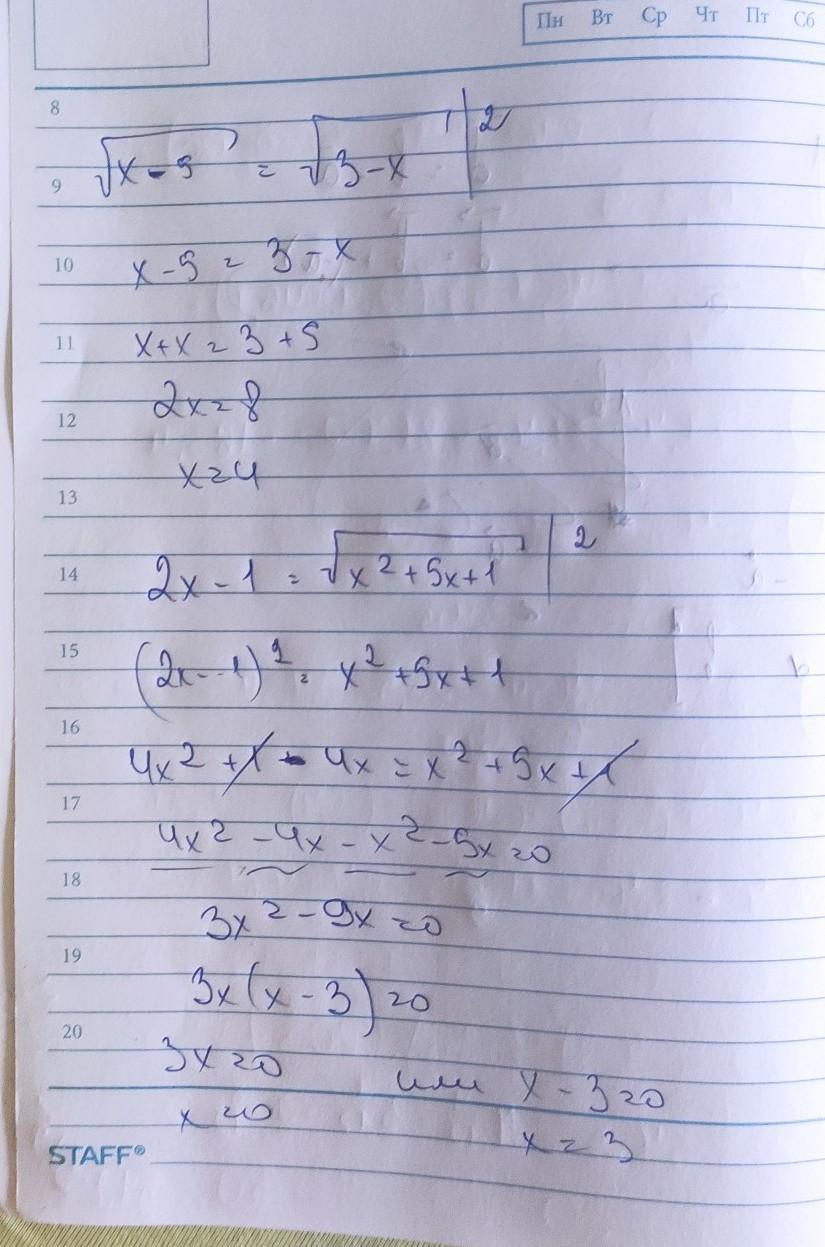 Пн Вт Ср Чт Пт Сб
8
√x-5 = √3-x | 2
9
10 x-5 = 3-x
11 x+x = 3+5
2x=8
12
x=4
13
14 2x-1 = √x²+5x+1 | 2
15 (2x-1)² = x²+5x+1
16
4x²+1-4x = x²+5x+1
17
4x²-4x-x²-5x=0
18
3x²-9x=0
19
3x(x-3)=0
20
3x=0 или x-3=0
x=0 x=3
STAFF®